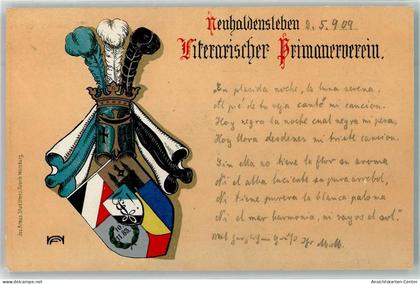 Neuhaldensleben d. 5.9.09
Literarischer Primanerverein.
En placida noche, la luna serena,
Al pié de tu reja cantó mi cancion.
Hoy negra la noche cual negra mi pena,
Hoy llora desdenes mi triste cancion.
Sin ella no tiene la flor su aroma
Ni el alba luciente su pura arrebol,
Ni tiene pureza la blanca paloma
Ni el mar harmonia, ni rayos el sol."
Mit
10
11.83
www.ansichtskarten-center.de
Ansichtskarten-Center